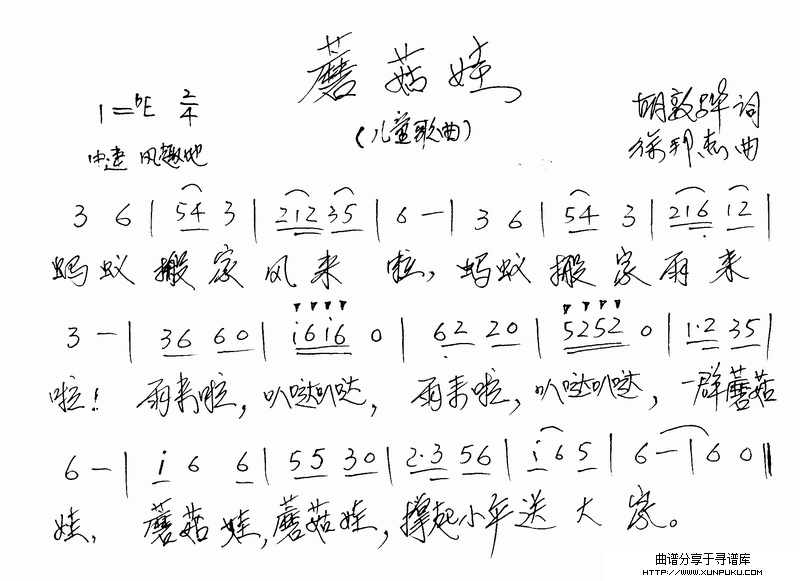 蘑菇娃
(儿童歌曲)
1=ᵇE 2/4
中速 风趣地
胡敦骅词
徐邦杰曲
3 6 | 54 3 | 212 35 | 6 — | 3 6 | 54 3 | 216 12 |
蚂蚁搬家风来啦,蚂蚁搬家雨来
3 — | 36 60 | i6i6 0 | 62 20 | 5252 0 | 1·2 35 |
啦!雨来啦,叭哒叭哒,雨来啦,叭哒叭哒,一群蘑菇
6 — | i 6 6 | 55 30 | 2·3 56 | i6 5 | 6 — | 6 0 ‖
娃,蘑菇娃,蘑菇娃,撑起小伞送大家。
曲谱分享于寻谱库
HTTP://WWW.XUNPUKU.COM